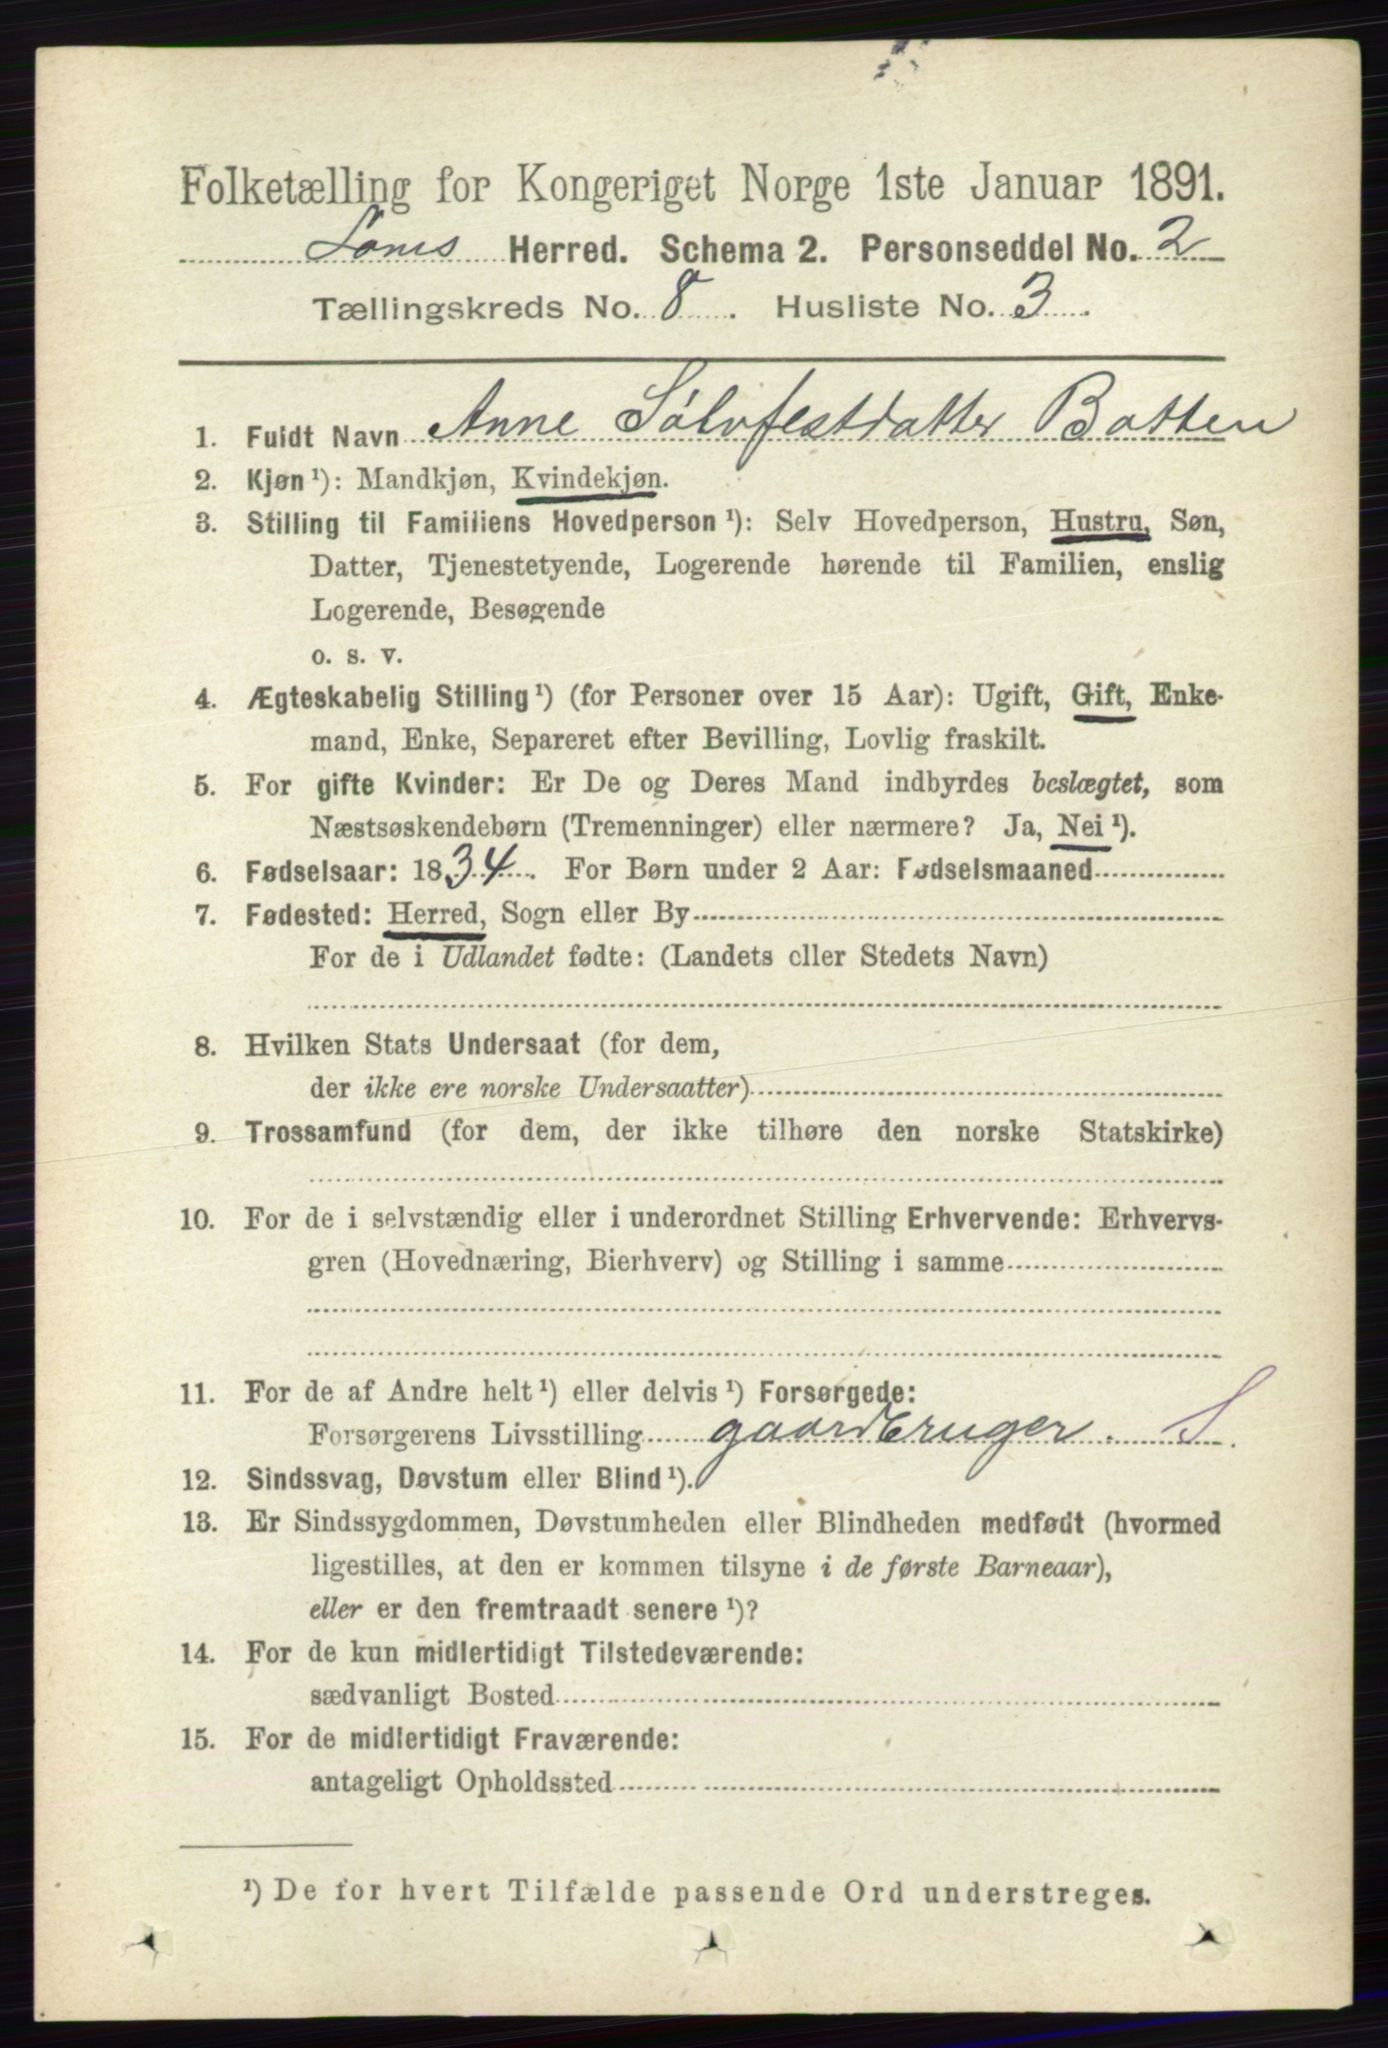 Folketælling for Kongeriget Norge 1ste Januar 1891.
Loms Herred. Schema 2. Personseddel No. 2
Tællingskreds No. 8. Husliste No. 3.
1. Fuldt Navn Anne Sølvfestdatter Botten
2. Kjøn ¹): Mandkjøn, Kvindekjøn.
3. Stilling til Familiens Hovedperson ¹): Selv Hovedperson, Hustru, Søn,
Datter, Tjenestetyende, Logerende hørende til Familien, enslig
Logerende, Besøgende
o. s. v.
4. Ægteskabelig Stilling ¹) (for Personer over 15 Aar): Ugift, Gift, Enke-
mand, Enke, Separeret efter Bevilling, Lovlig fraskilt.
5. For gifte Kvinder: Er De og Deres Mand indbyrdes beslægtet, som
Næstsøskendebørn (Tremenninger) eller nærmere? Ja, Nei ¹).
6. Fødselsaar: 1834. For Børn under 2 Aar: Fødselsmaaned
7. Fødested: Herred, Sogn eller By
For de i Udlandet fødte: (Landets eller Stedets Navn)
8. Hvilken Stats Undersaat (for dem,
der ikke ere norske Undersaatter)
9. Trossamfund (for dem, der ikke tilhøre den norske Statskirke)
10. For de i selvstændig eller i underordnet Stilling Erhvervende: Erhvervs-
gren (Hovednæring, Bierhverv) og Stilling i samme
11. For de af Andre helt ¹) eller delvis ¹) Forsørgede:
Forsørgerens Livsstilling gaardbruger. S.
12. Sindssvag, Døvstum eller Blind ¹).
13. Er Sindssygdommen, Døvstumheden eller Blindheden medfødt (hvormed
ligestilles, at den er kommen tilsyne i de første Barneaar),
eller er den fremtraadt senere ¹)?
14. For de kun midlertidigt Tilstedeværende:
sædvanligt Bosted
15. For de midlertidigt Fraværende:
antageligt Opholdssted
¹) De for hvert Tilfælde passende Ord understreges.